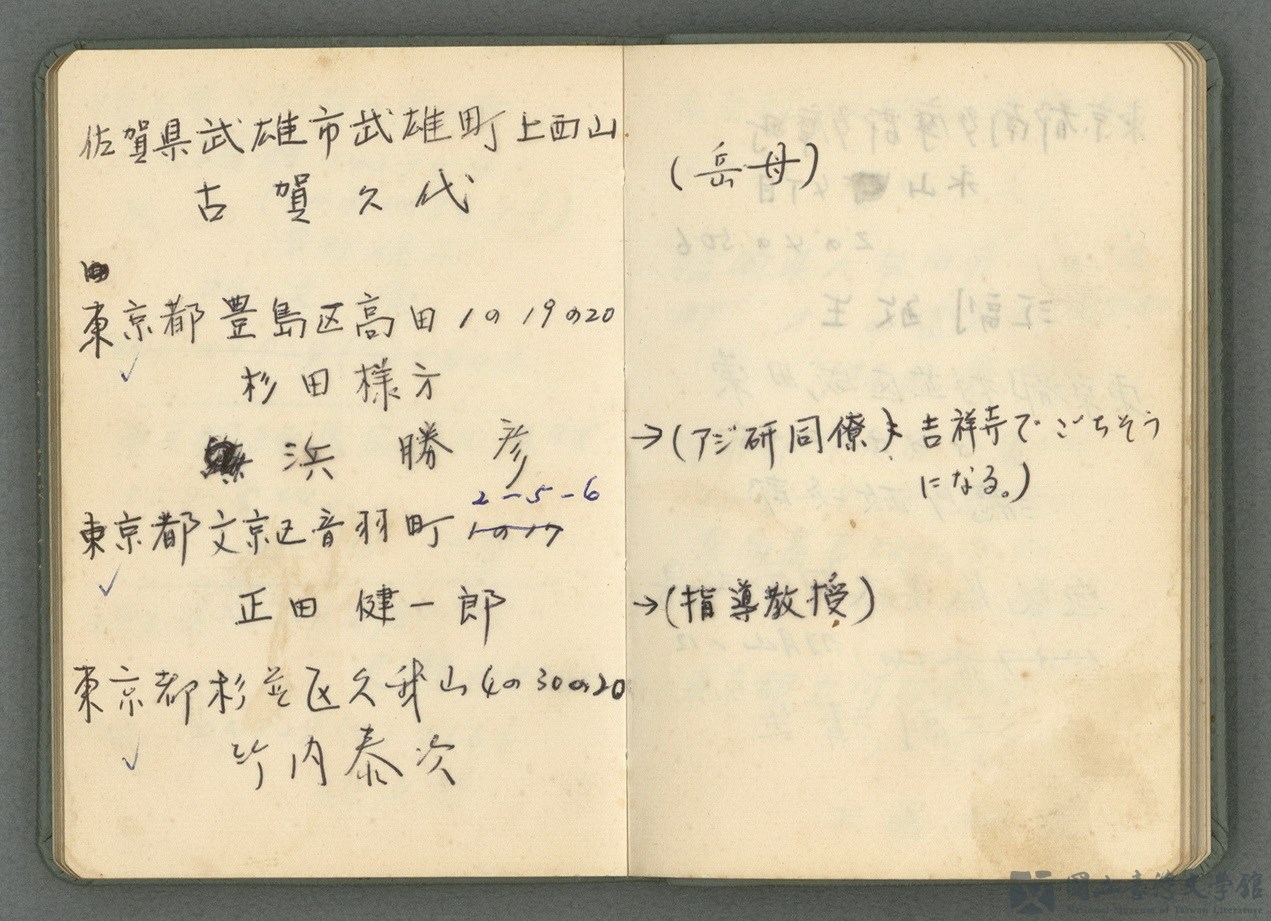 佐賀県武雄市武雄町上西山
古賀久代
(岳母)
東京都豊島区高田1の19の20
杉田様方
浜勝彦
→(アジ研同僚) 吉祥寺でごちそう
になる。)
2-5-6
東京都文京区音羽町1の17
正田健一郎
→(指導教授)
東京都杉並区久我山4の30の20
竹内泰次
國立臺灣文學館
National Museum of Taiwan Literature